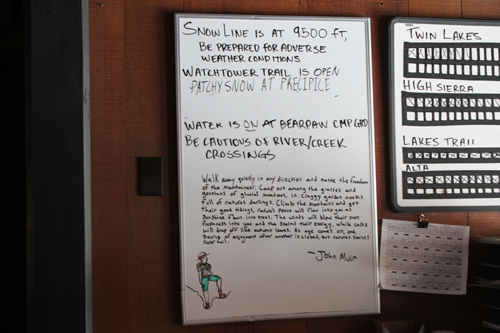 SNOW LINE IS AT 9500 FT,
BE PREPARED FOR ADVERSE
WEATHER CONDITIONS
WATCHTOWER TRAIL IS OPEN
PATCHY SNOW AT PRECIPICE
WATER IS ON AT BEARPAW CMPGRD
BE CAUTIOUS OF RIVER/CREEK
CROSSINGS
Walk away quietly in any direction and taste the freedom
of the mountaineer. Camp out among the grasses and
gentians of glacial meadows, in craggy garden nooks
full of nature's darlings. Climb the mountains and get
their good tidings, nature's peace will flow into you as
sunshine flows into trees. The winds will blow their own
freshness into you and the storms their energy, while cares
will drop off like autumn leaves. As age comes on, one
source of enjoyment after another is closed, but nature's sources
never fail.
-John Muir
TWIN LAKES
HIGH SIERRA
LAKES TRAIL
ALTA